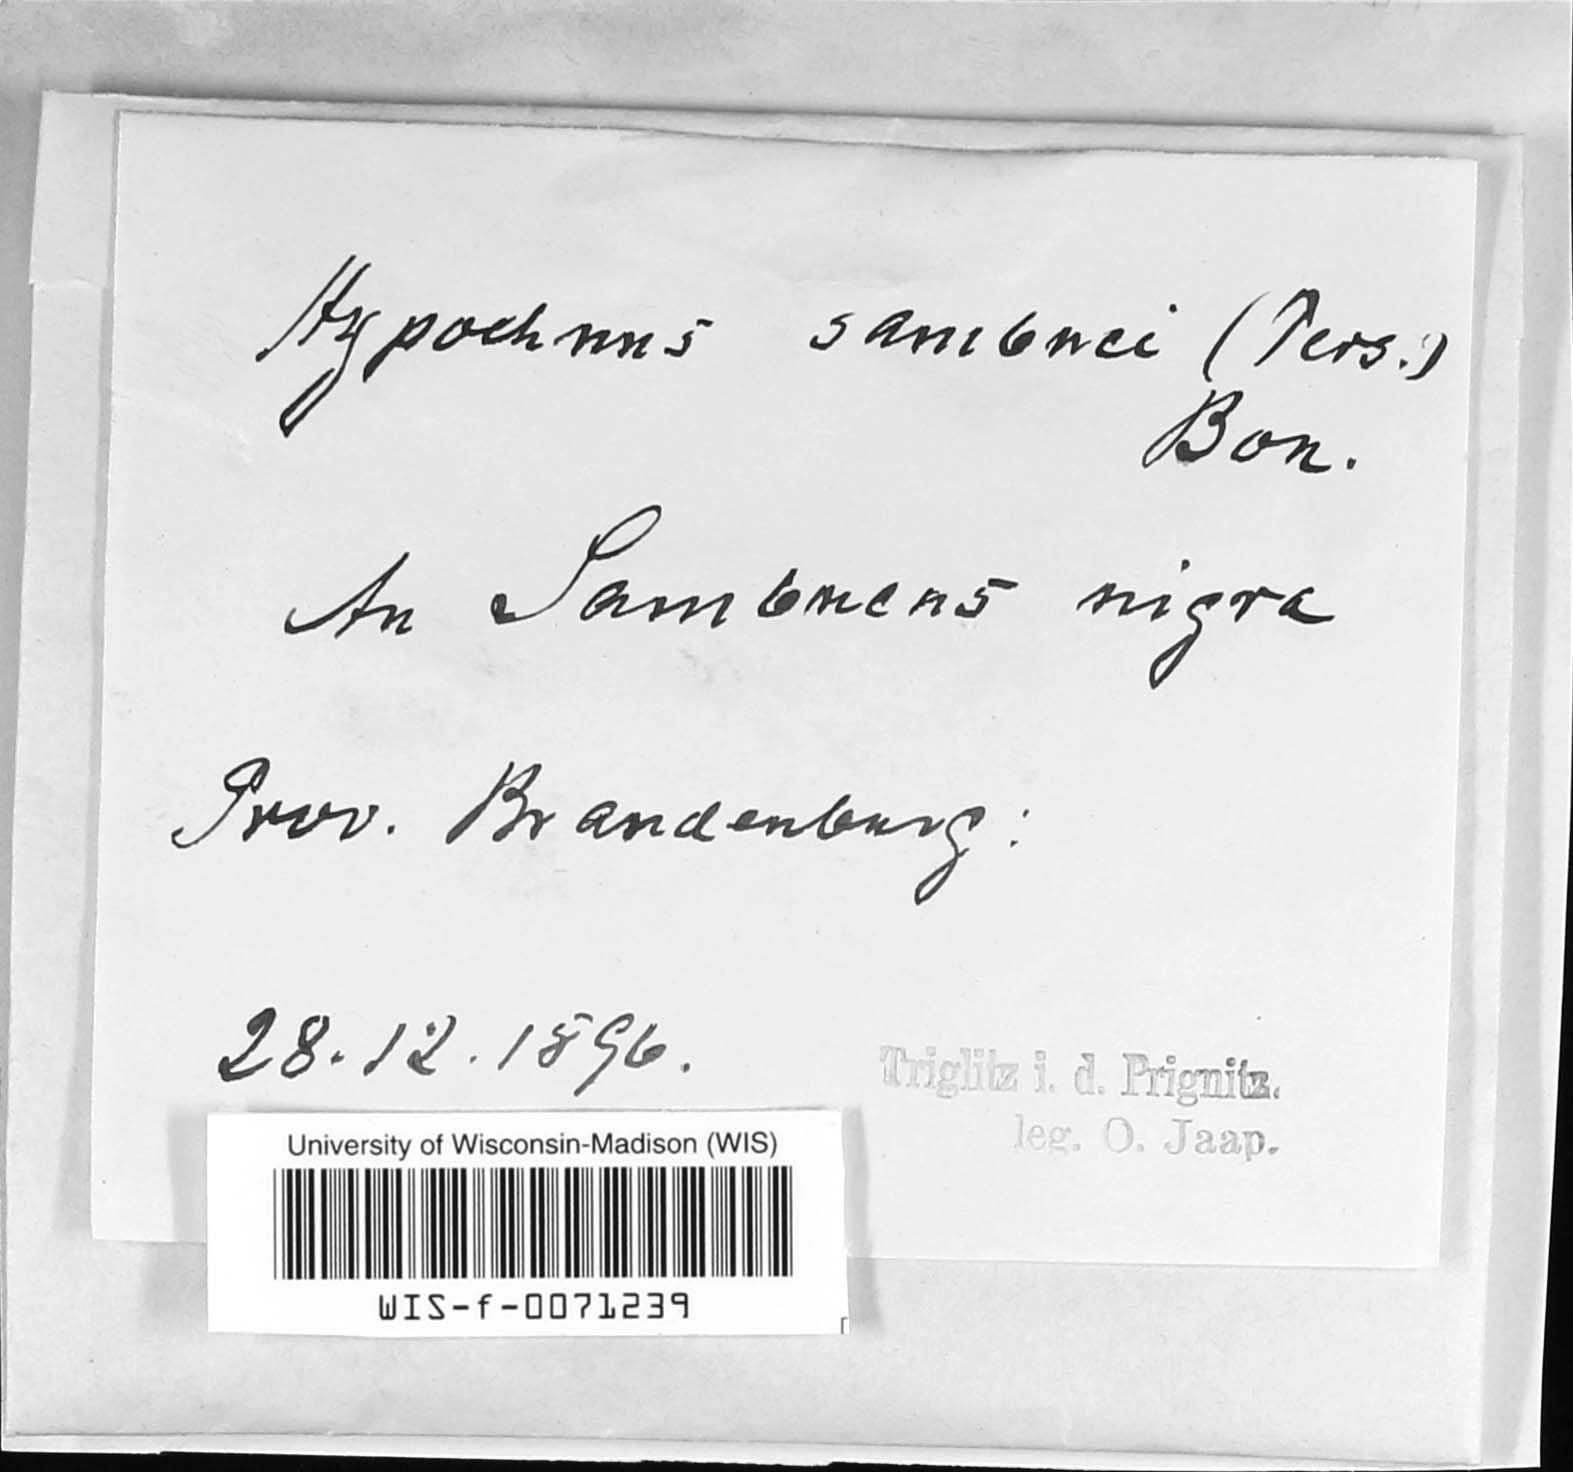 Hypochnus sambuci (Pers.)
Bon.
An Sambucus nigra
Prov. Brandenburg:
28.12.1896.
Triglitz i. d. Prignitz.
leg. O. Jaap.
University of Wisconsin-Madison (WIS)
WIS-f-0071239